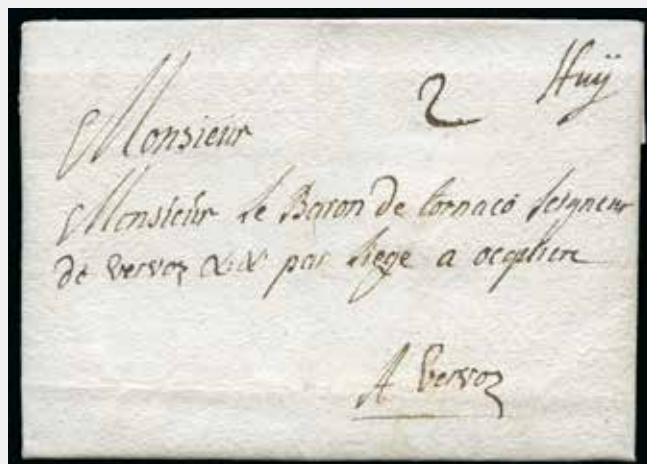 2 Huÿ
Monsieur
Monsieur le Baron de tornaco seigneur
de vervoz &c &c par liege a ocquiere
A vervoz